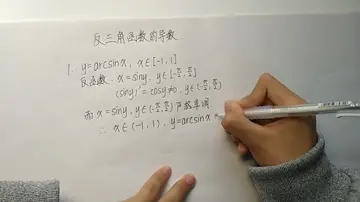 反三角函数的导数
1. y=arcsinx, x∈[-1,1]
反函数. x=siny. y∈[-π/2,π/2]
(siny)'=cosy≠0, y∈(-π/2,π/2)
而 x=siny, y∈(-π/2,π/2) 严格单调
∴ x∈(-1,1), y=arcsinx